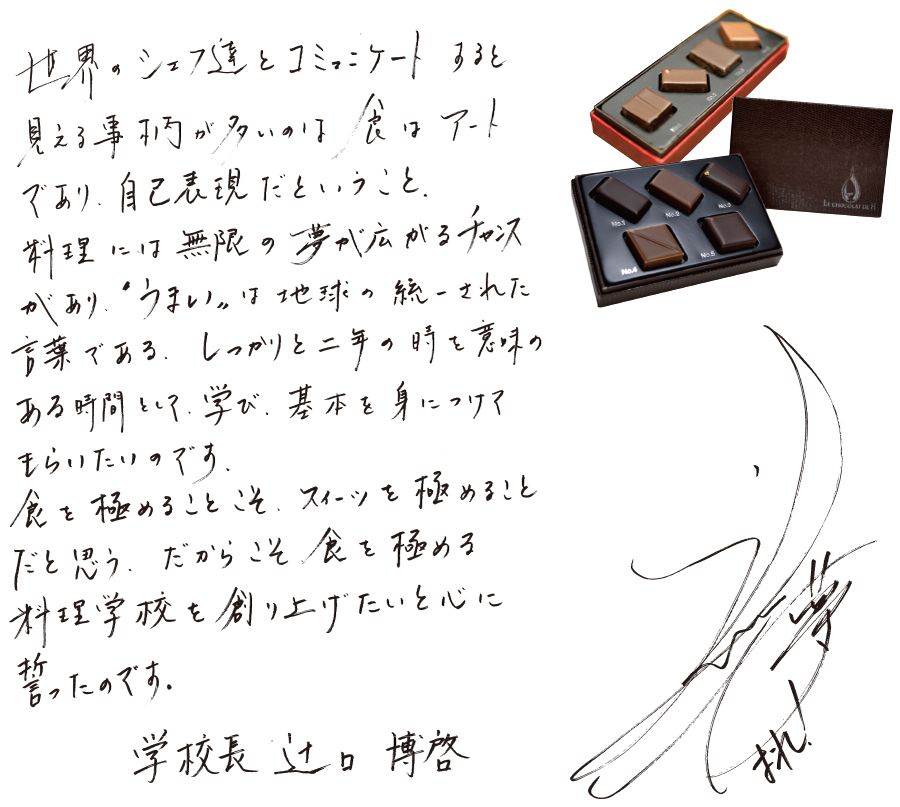 世界のシェフ達とコミュニケートすると
見える事柄が多いのは食はアート
であり、自己表現だということ。
料理には無限の夢が広がるチャンス
があり、〝うまい〟は地球の統一された
言葉である。しっかりと二年の時を意味の
ある時間として、学び、基本を身につけて
もらいたいのです。
食を極めることこそ、スイーツを極めること
だと思う。だからこそ食を極める
料理学校を創り上げたいと心に
誓ったのです。
学校長 辻口 博啓
LE CHOCOLAT DE H
No.1
No.2
No.3
No.4
No.5
夢